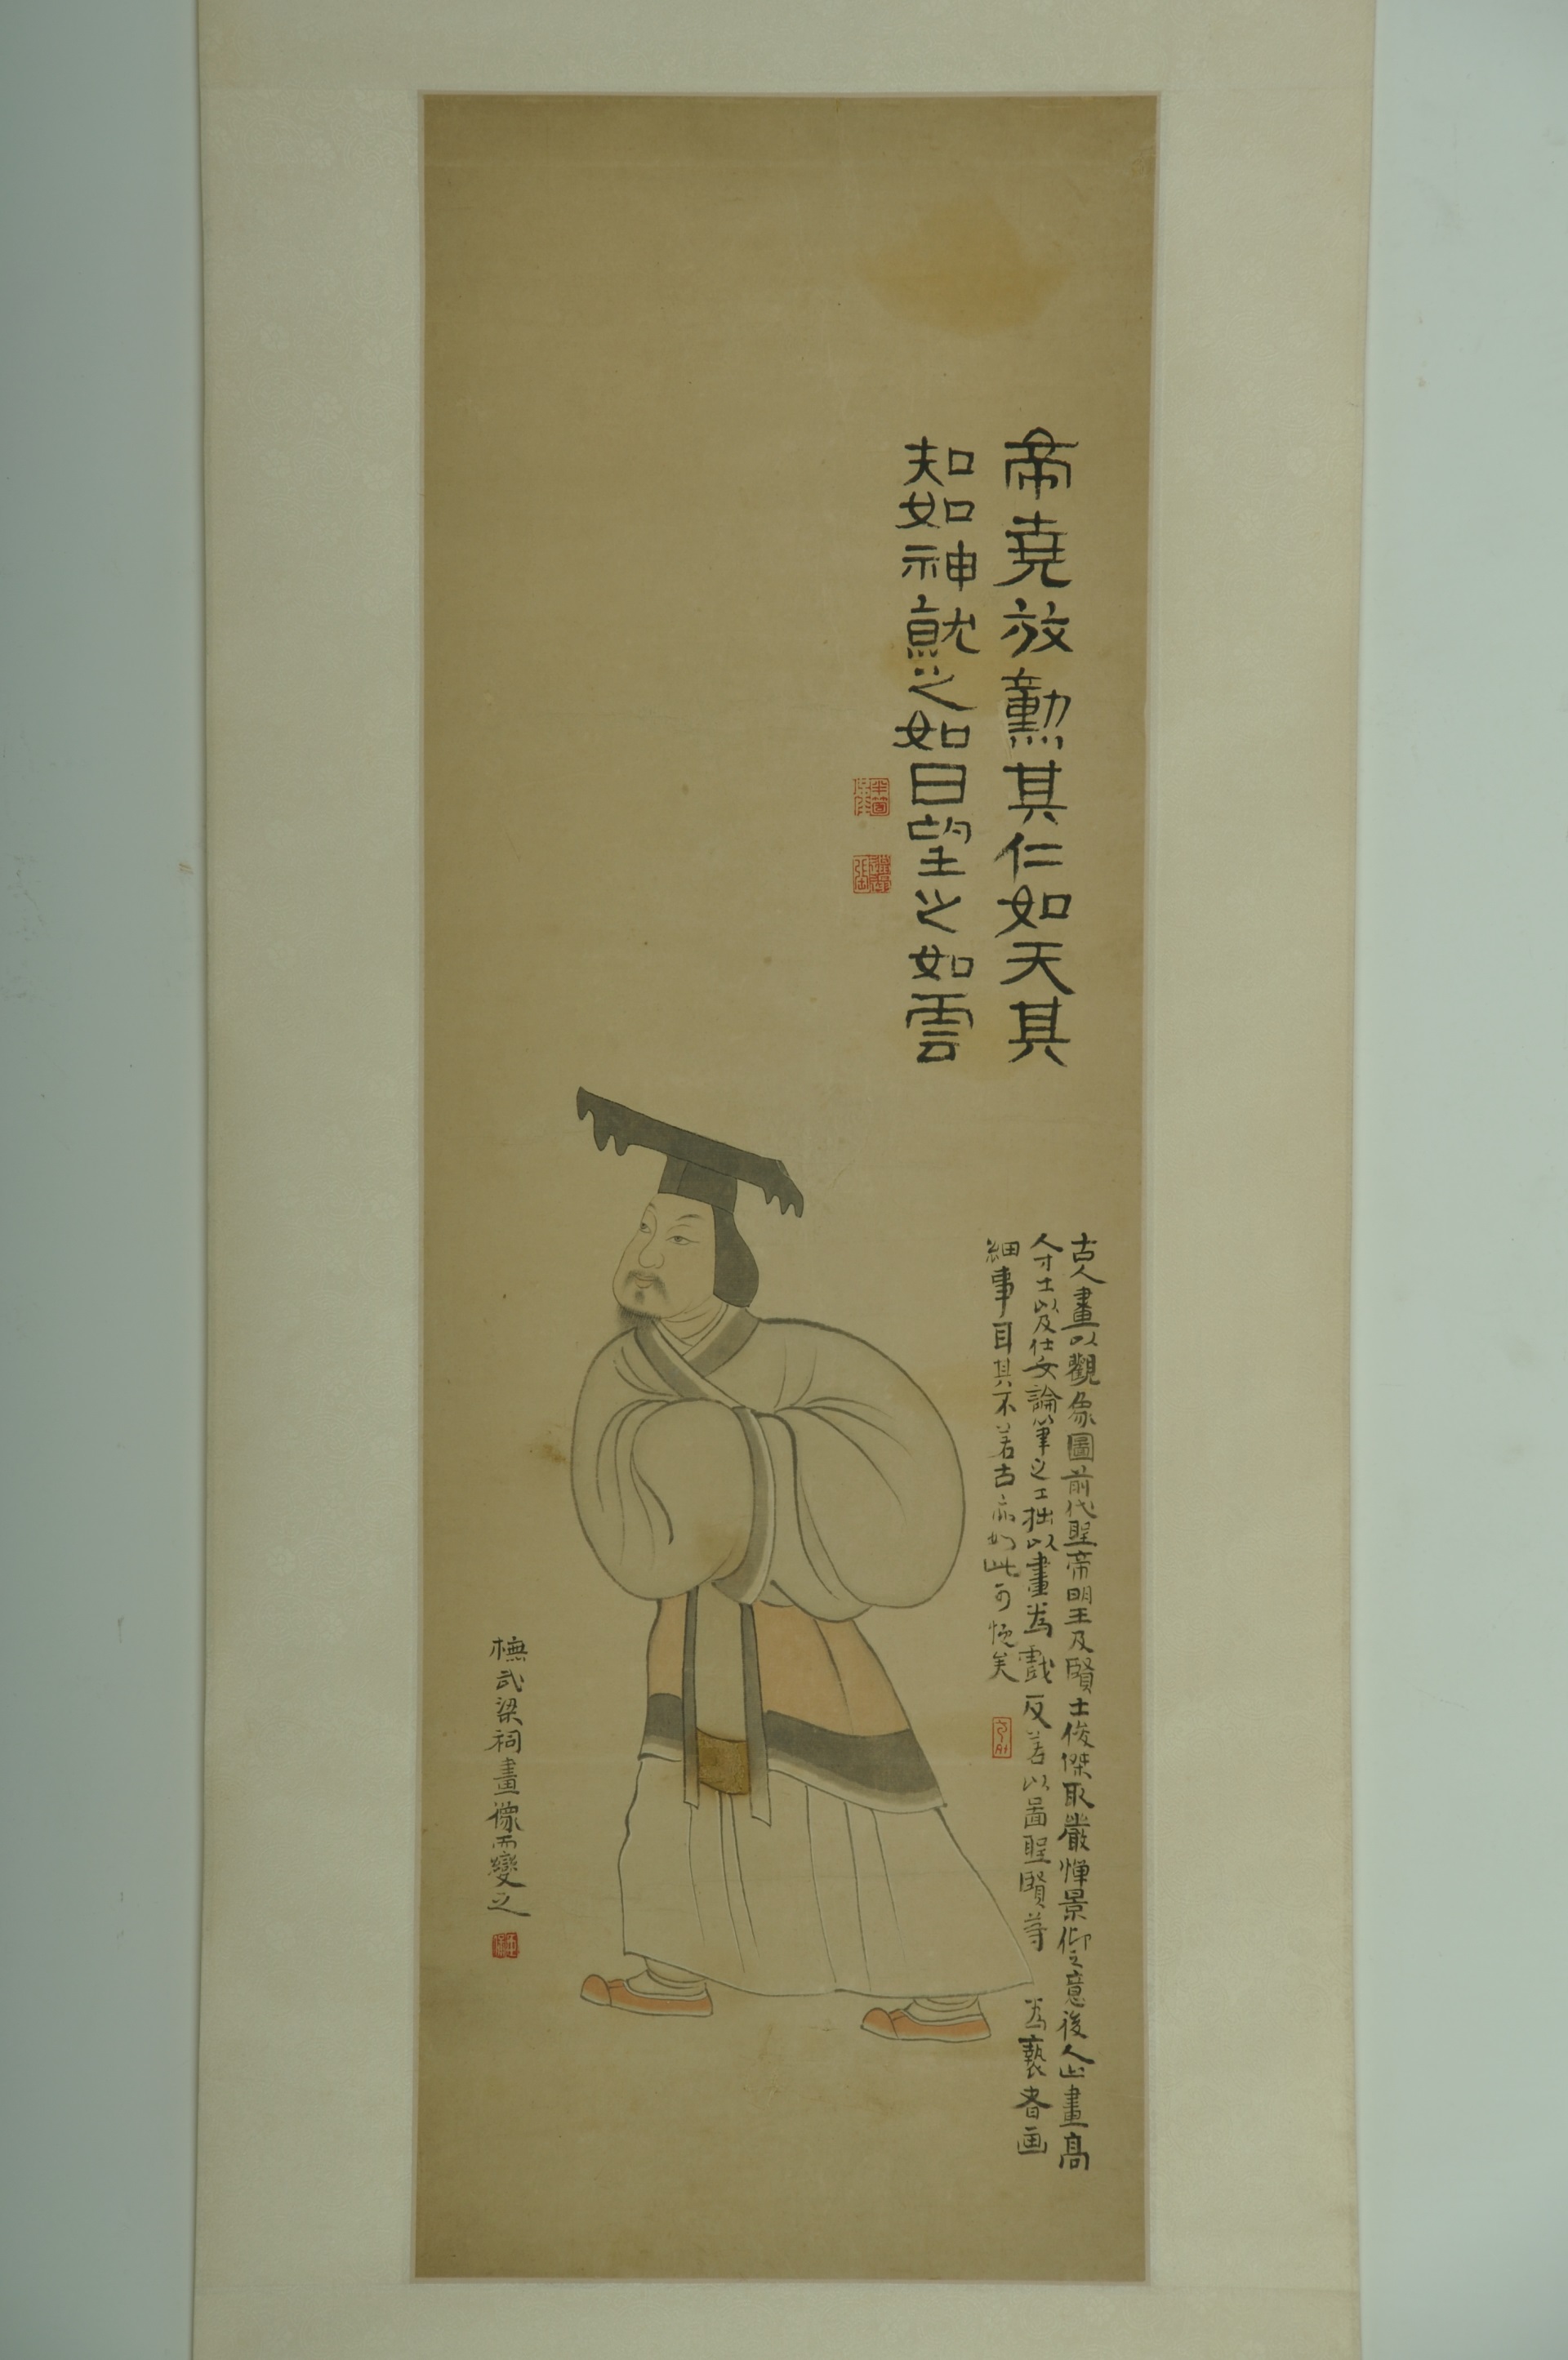 帝堯放勳其仁如天其
知如神就之如日望之如雲
古人畫以觀象圖前代聖帝明王及賢士俊傑取嚴憚景仰之意後人山畫高
人才士以及仕女論筆之工拙以畫為戲反若以啚聖賢等為褻者画
細事耳其不若古亦如此可慨矣
橅武梁祠畫像而變之